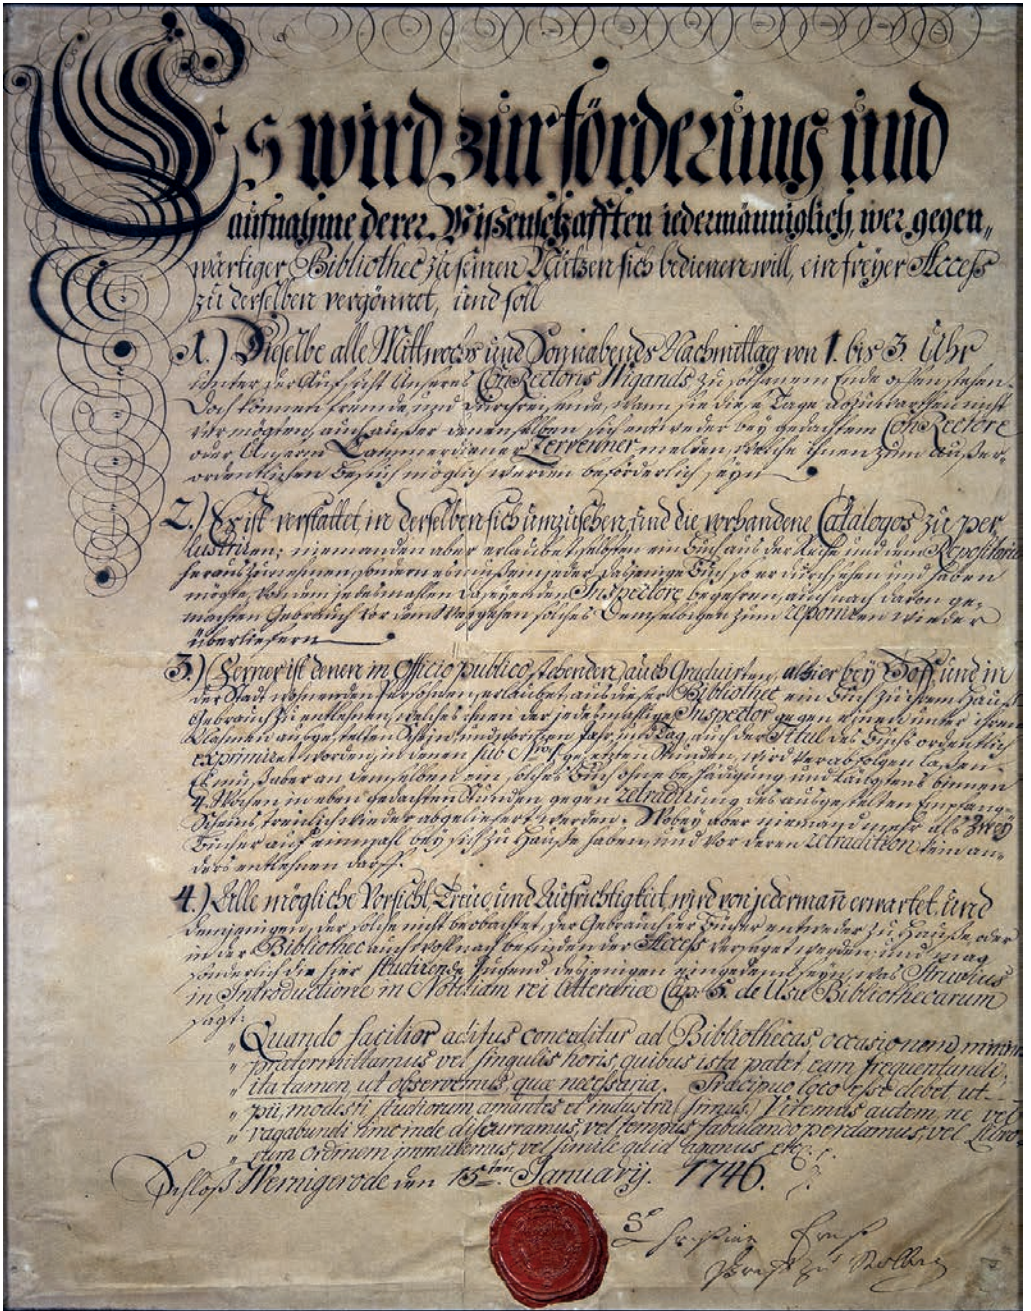 Es wird zur förderung und
aufnahme derer Wißenschafften iedermänniglich, wer gegen„
wärtiger Bibliothec zu seinen Nutzen sich bedienen will, ein freyer Access
zu derselben vergönnet, und soll
1.) Dieselbe alle Mittwochs und Sonnabends Nachmittag von 1. bis 3. Uhr
unter der Aufsicht Unseres ConRectoris Wigands zu solchem Ende offen stehen.
Doch können fremde und durchreisende, wann sie diese Tage abzuwarthen nicht
vermögten, auch außer denenselben sich entweder bey gedachtem ConRectore
oder Unserm Cammerdiener Zerrenner melden, welche ihnen zum außer-
ordentlichen Besuch möglich werden beförderlich seyn.
2.) Es ist verstattet, in derselben sich umzusehen, und die vorhandene Catalogos zu per
lustriren; niemanden aber erlaubet, selbsten ein Buch aus der Reihe und dem Repositorio
heraus zu nehmen, sondern es muß ein jeder dasjenige Buch so er durchsehen und haben
mögte, von dem jedesmahlen daseyenden Inspectore begehren, auch nach davon ge-
machten Gebrauch vor dem Weggehen solches demselbigen zum reponiren wieder
überliefern.
3.) Ferner ist denen in Officio publico stehenden, auch Graduirten, alhier bey Hoff, und in
der Stadt wohnenden Persohnen, erlaubet, aus dieser Bibliothec ein Buch zu ihrem Hauß
Gebrauch zu entlehnen, welches ihnen der jedesmahlige Inspector gegen einen unter ihrem
Nahmen ausgestelten Schein, und worinnen Jahr und Tag, auch der Titul des Buchs ordentlich
exprimiret worden, in denen sub No. 1. gesetzten Stunden, wird verabfolgen laßen.
Es muß aber an demselben ein solches Buch ohne beschädigung und längstens binnen
4. Wochen in eben gedachten Stunden, gegen retradirung des ausgestelten Empfang-
Scheins treulich wieder abgeliefert werden. Wobey aber niemand mehr als zwey
Bücher auf einmahl bey sich zu Hauße haben, und vor deren retradition kein an-
ders entlehnen darff.
4.) Alle mögliche Vorsicht, Treue und Aufrichtigkeit, wird von jedermañ erwartet, und
demjenigen, der solche nicht beobachtet, der Gebrauch der Bücher entweder zu Hauße, oder
in der Bibliothec auch wohl nach befinden der Access versaget werden, und mag
sonderlich die hier studirende Jugend desjenigen eingedenck seyn, was Struvius
in Introductione in Notitiam rei litterariæ Cap. 5. de Usu Bibliothecarum
sagt:
„ Quando facilior aditus conceditur ad Bibliothecas, occasionem
„ prætermittamus vel singulis horis, quibus ista patet, eam frequentandi,
„ ita tamen, ut observemus, quæ necessaria. Præcipuo loco esse debet, ut
„ pii, modesti, studiorum amantes et industrii simus. Vitemus autem, ne vel
„ vagabundi hinc inde discurramus, vel tempus fabulando perdamus, vel libro-
„ rum ordinem immutemus, vel simile quid agamus etc.
Schloß Wernigerode den 15ten January. 1746.
Christian Ernst
Graff zu Stolberg